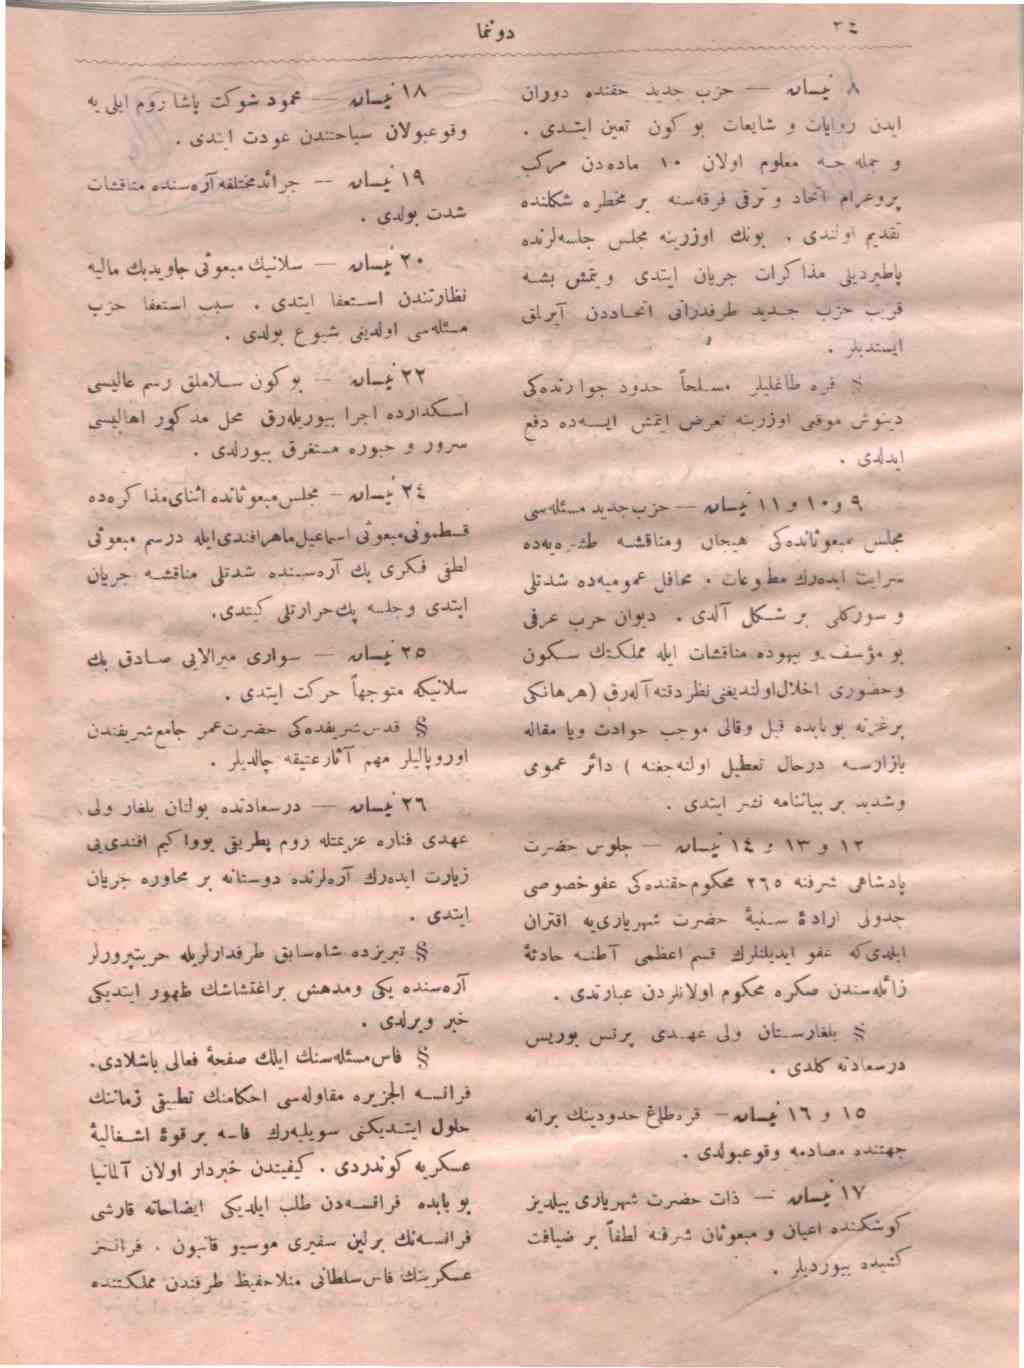 ٣٤
دونما
٨ نیسان — حزب جدید حقنده دوران
ایدن روایات و شایعات بوکون تعین ایتدی .
و جمله‌جه معلوم اولان ١٠ ماده‌دن مرکب
پروغرام اتحاد و ترقی فرقه‌سنه بر مخطره شکلنده
تقدیم اولندی . بونك اوزرینه مجلس جلسه‌لرنده
پاطیردیلی مذاکرات جریان ایتدی و یتمش بشه
قریب حزب جدید طرفدرانی اتحاددن آیرلمق
ایستدیلر .
§ قره طاغلیلر مسلحاً حدود جوارنده‌کی
دینوش موقعی اوزرینه تعرض ایتمش ایسه‌ده دفع
ایدلدی .
٩ و ١٠ و ١١ نیسان — حزب جدید مسئله‌سی
مجلس مبعوثانده‌کی هیجان ومناقشه طشره‌یه‌ده
سرایت ایده‌رك مطبوعات . محافل عمومیه‌ده شدتلی
و سورکلی بر شکل آلدی . دیوان حرب عرفی
بو مؤسف و بیهوده مناقشات ایله مملکتك سکون
وحضوری اخلال اولندیغنی نظر دقته آله‌رق (هرهانکی
برغزته بوبابده قیل وقالی موجب حوادث ویا مقاله
یازارسه درحال تعطیل اولنه‌جغنه ) دائر عمومی
وشدید بر بیاننامه نشر ایتدی .
١٢ و ١٣ و ١٤ نیسان — جلوس حضرت
پادشاهی شرفنه ٢٦٥ محکوم حقنده‌کی عفو خصوصی
جدولی ارادۀ سنیۀ حضرت شهریاری‌یه اقتران
ایلدی‌که عفو ایدیلنلرك قسم اعظمی آطنه حادثۀ
زائله‌سندن صکره محکوم اولانلردن عبارتدی .
§ بلغارستان ولی عهدی پرنس بوریس
درسعادته کلدی .
١٥ و ١٦ نیسان — قره‌طاغ حدودینك برانه
جهتنده مصادمه وقوعبولدی .
١٧ نیسان — ذات حضرت شهریاری ییلدیز
کوشکنده اعیان و مبعوثان شرفنه لطفاً بر ضیافت
کشیده بیوردیلر .
١٨ نیسان — محمود شوکت پاشا روم ایلی یه
وقوعبولان سیاحتندن عودت ایتدی .
١٩ نیسان — جرائد مختلفه آره‌سنده مناقشات
شدت بولدی .
٢٠ نیسان — سلانیك مبعوثی جاویدبك مالیه
نظارتندن استعفا ایتدی . سبب استعفا حزب
مسئله‌سی اولدیغی شیوع بولدی .
٢٢ نیسان — بوکون سلاملق رسم عالیسی
اسکدارده اجرا بیوریله‌رق محل مذکور اهالیسی
سرور و حبوره مستغرق بیورلدی .
٢٤ نیسان — مجلس مبعوثانده اثنای مذاکره‌ده
قسطمونی مبعوثی اسماعیل ماهر افندی ایله درسم مبعوثی
لطفی فکری بك آره‌سنده شدتلی مناقشه جریان
ایتدی وجلسه پك حرارتلی کچدی .
٢٥ نیسان — سواری میرالایی صادق بك
سلانیکه متوجهاً حرکت ایتدی .
§ قدس شریفده‌کی حضرت عمر جامع شریفندن
اوروپالیلر مهم آثار عتیقه چالدیلر .
٢٦ نیسان — درسعادتده بولنان بلغار ولی
عهدی فناره عزیمتله روم پطریقی یوواکیم افندی‌یی
زیارت ایده‌رك آره‌لرنده دوستانه بر محاوره جریان
ایتدی .
§ تبریزده شاه سابق طرفدارلریله حریتپرورلر
آره‌سنده یکی ومدهش براغتشاشك ظهور ایتدیکی
خبر ویرلدی .
§ فاس مسئله‌سنك ایلك صفحۀ فعالی باشلادی .
فرانسه الجزیره مقاوله‌سی احکامنك تطبیقی زماننك
حلول ایتدیکنی سویلیه‌رك فاسه برقوۀ اشغالیۀ
عسکریه کوندردی . کیفیتدن خبردار اولان آلمانیا
بو بابده فرانسه‌دن طلب ایلدیکی ایضاحاته قارشی
فرانسه‌نك برلین سفیری موسیو قانبون . فرانسز
عسکرینك فاس سلطانی منلا حفیظ طرفندن مملکتنده